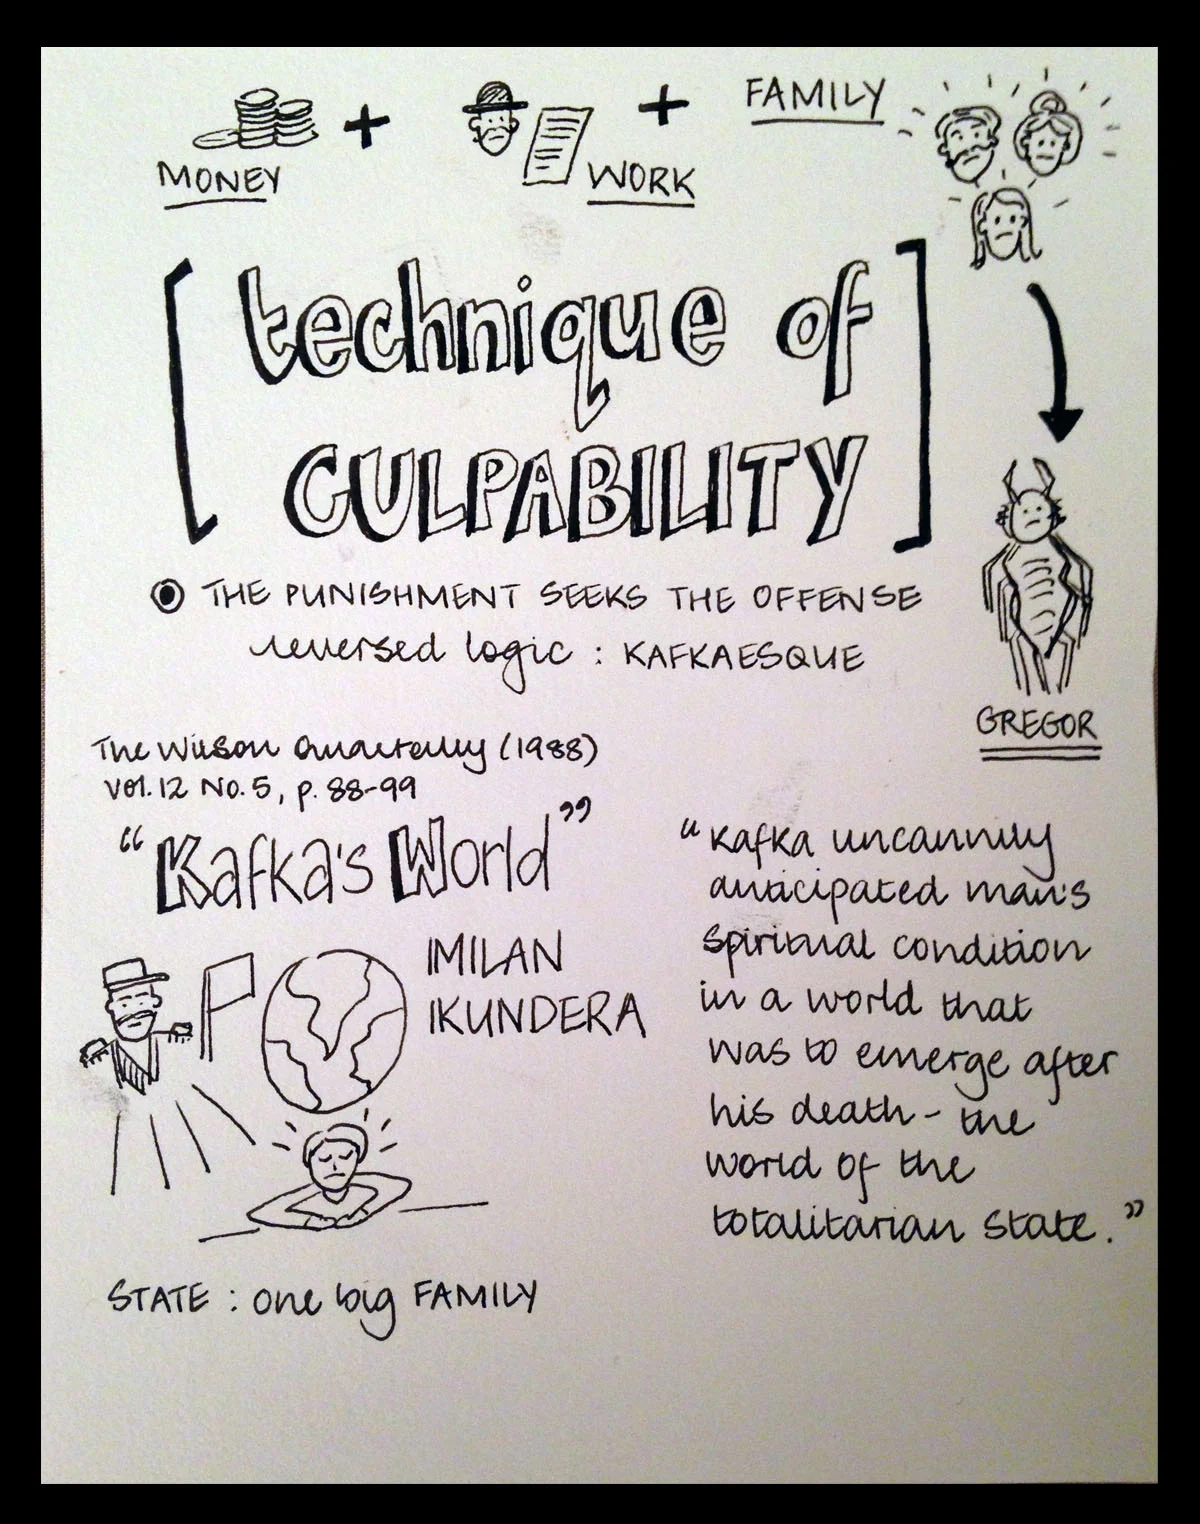 MONEY + WORK + FAMILY
[technique of
CULPABILITY]
THE PUNISHMENT SEEKS THE OFFENSE
reversed logic : KAFKAESQUE
GREGOR
The Wilson Quarterly (1988)
Vol. 12 No. 5, p. 88-99
"Kafka's World"
MILAN
KUNDERA
"Kafka uncannily
anticipated man's
spiritual condition
in a world that
was to emerge after
his death - the
world of the
totalitarian State."
STATE : one big FAMILY